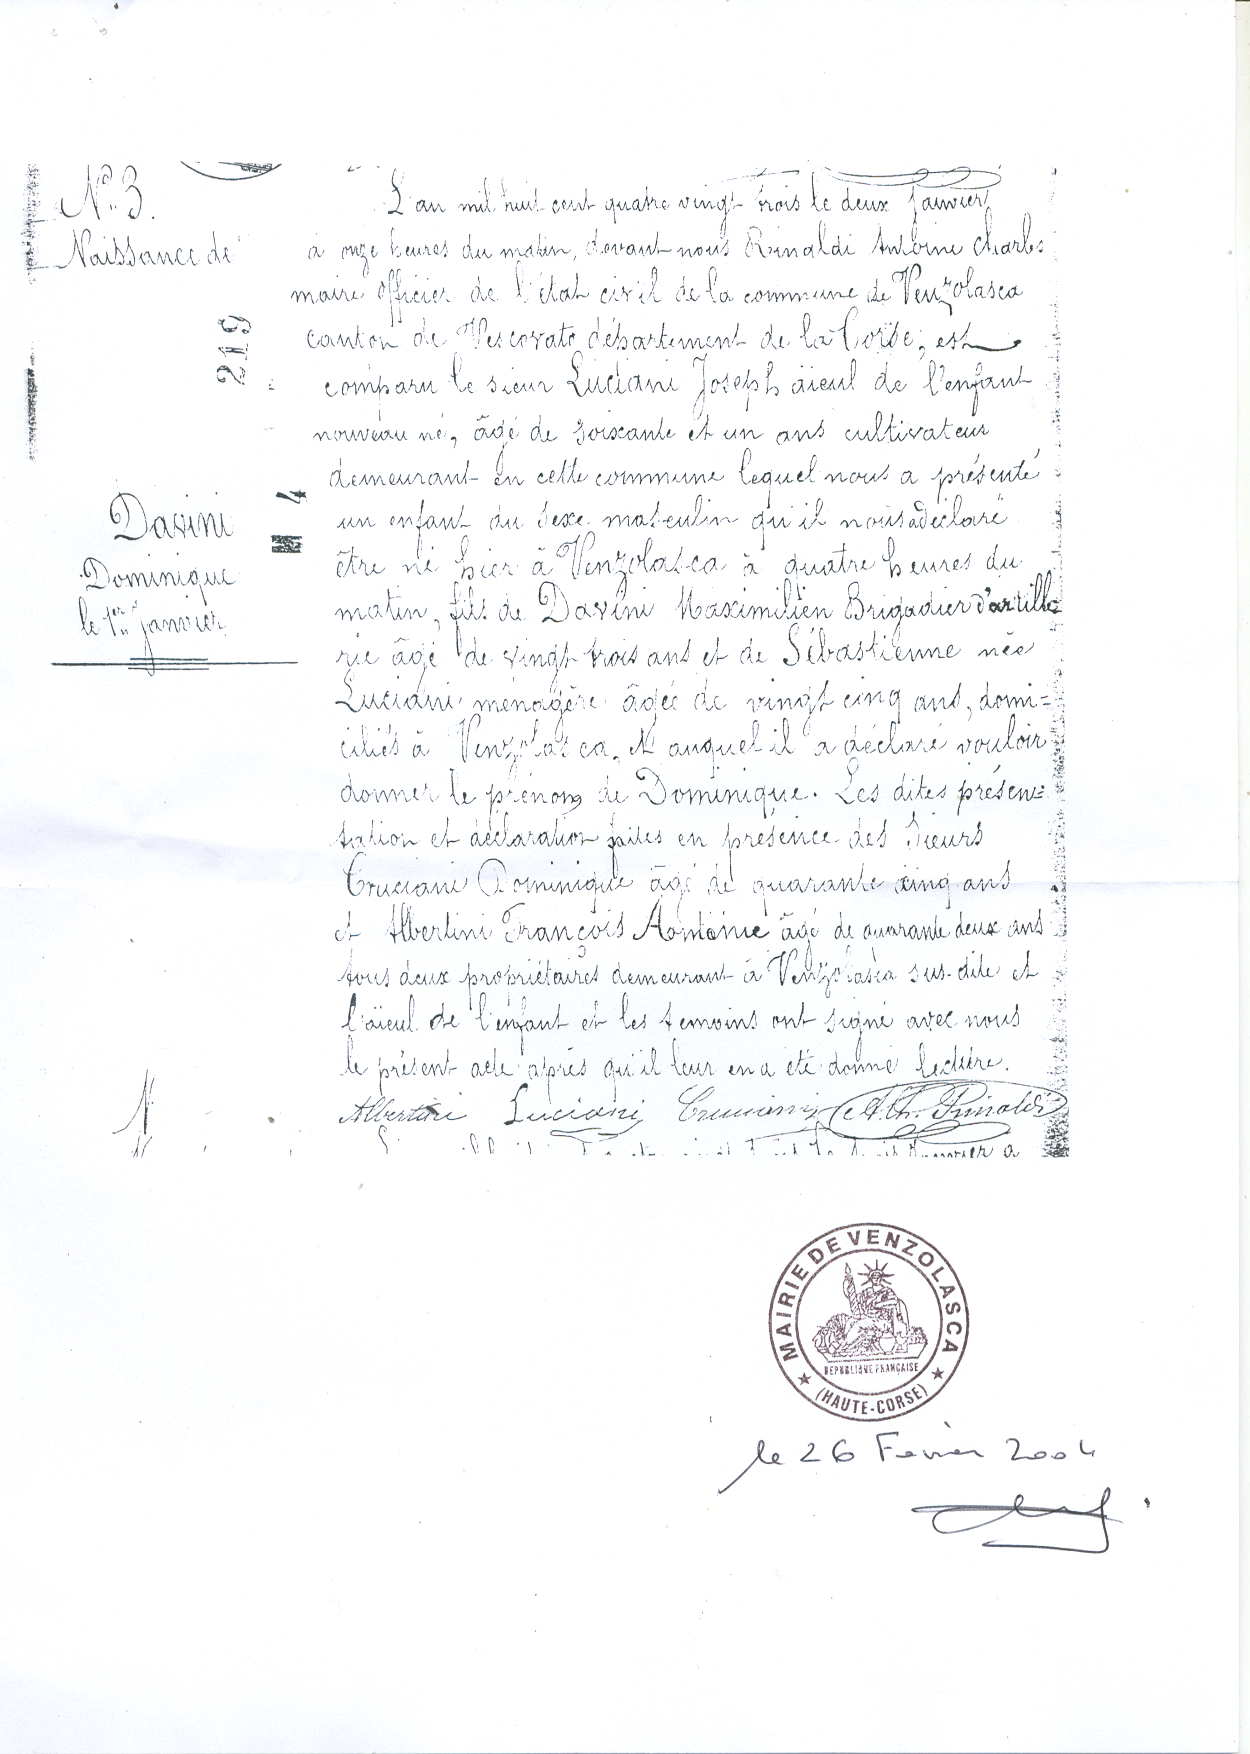 N° 3.
Naissance de
219
4
Davini
Dominique
le 1er janvier
L'an mil huit cent quatre vingt trois le deux janvier
à onze heures du matin, devant nous Rinaldi Antoine Charles
maire officier de l'état civil de la commune de Venzolasca
canton de Vescovato département de la Corse, est
comparu le sieur Luciani Joseph aïeul de l'enfant
nouveau né, âgé de soixante et un ans cultivateur
demeurant en cette commune lequel nous a présenté
un enfant du sexe masculin qu'il nous a déclaré
être né hier à Venzolasca à quatre heures du
matin, fils de Davini Maximilien Brigadier d'artille
rie âgé de vingt trois ans et de Sébastienne née
Luciani ménagère âgée de vingt cinq ans, domi=
ciliés à Venzolasca, et auquel il a déclaré vouloir
donner le prénom de Dominique. Les dites présen=
tation et déclaration faites en présence des Sieurs
Cruciani Dominique âgé de quarante cinq ans
et Albertini François Antoine âgé de quarante deux ans
tous deux propriétaires demeurant à Venzolasca sus-dite et
l'aïeul de l'enfant et les temoins ont signé avec nous
le présent acte après qu'il leur en a été donné lecture.
Albertini Luciani Cruciani A. Ch. Rinaldi
N
MAIRIE DE VENZOLASCA
REPUBLIQUE FRANÇAISE
(HAUTE-CORSE)
le 26 Fevrier 2004